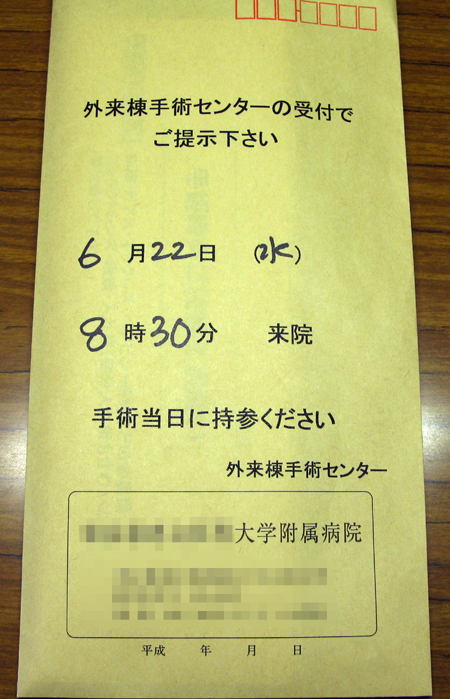 外来棟手術センターの受付で
ご提示下さい
6月22日 (水)
8時30分 来院
手術当日に持参ください
外来棟手術センター
大学附属病院
平成 年 月 日